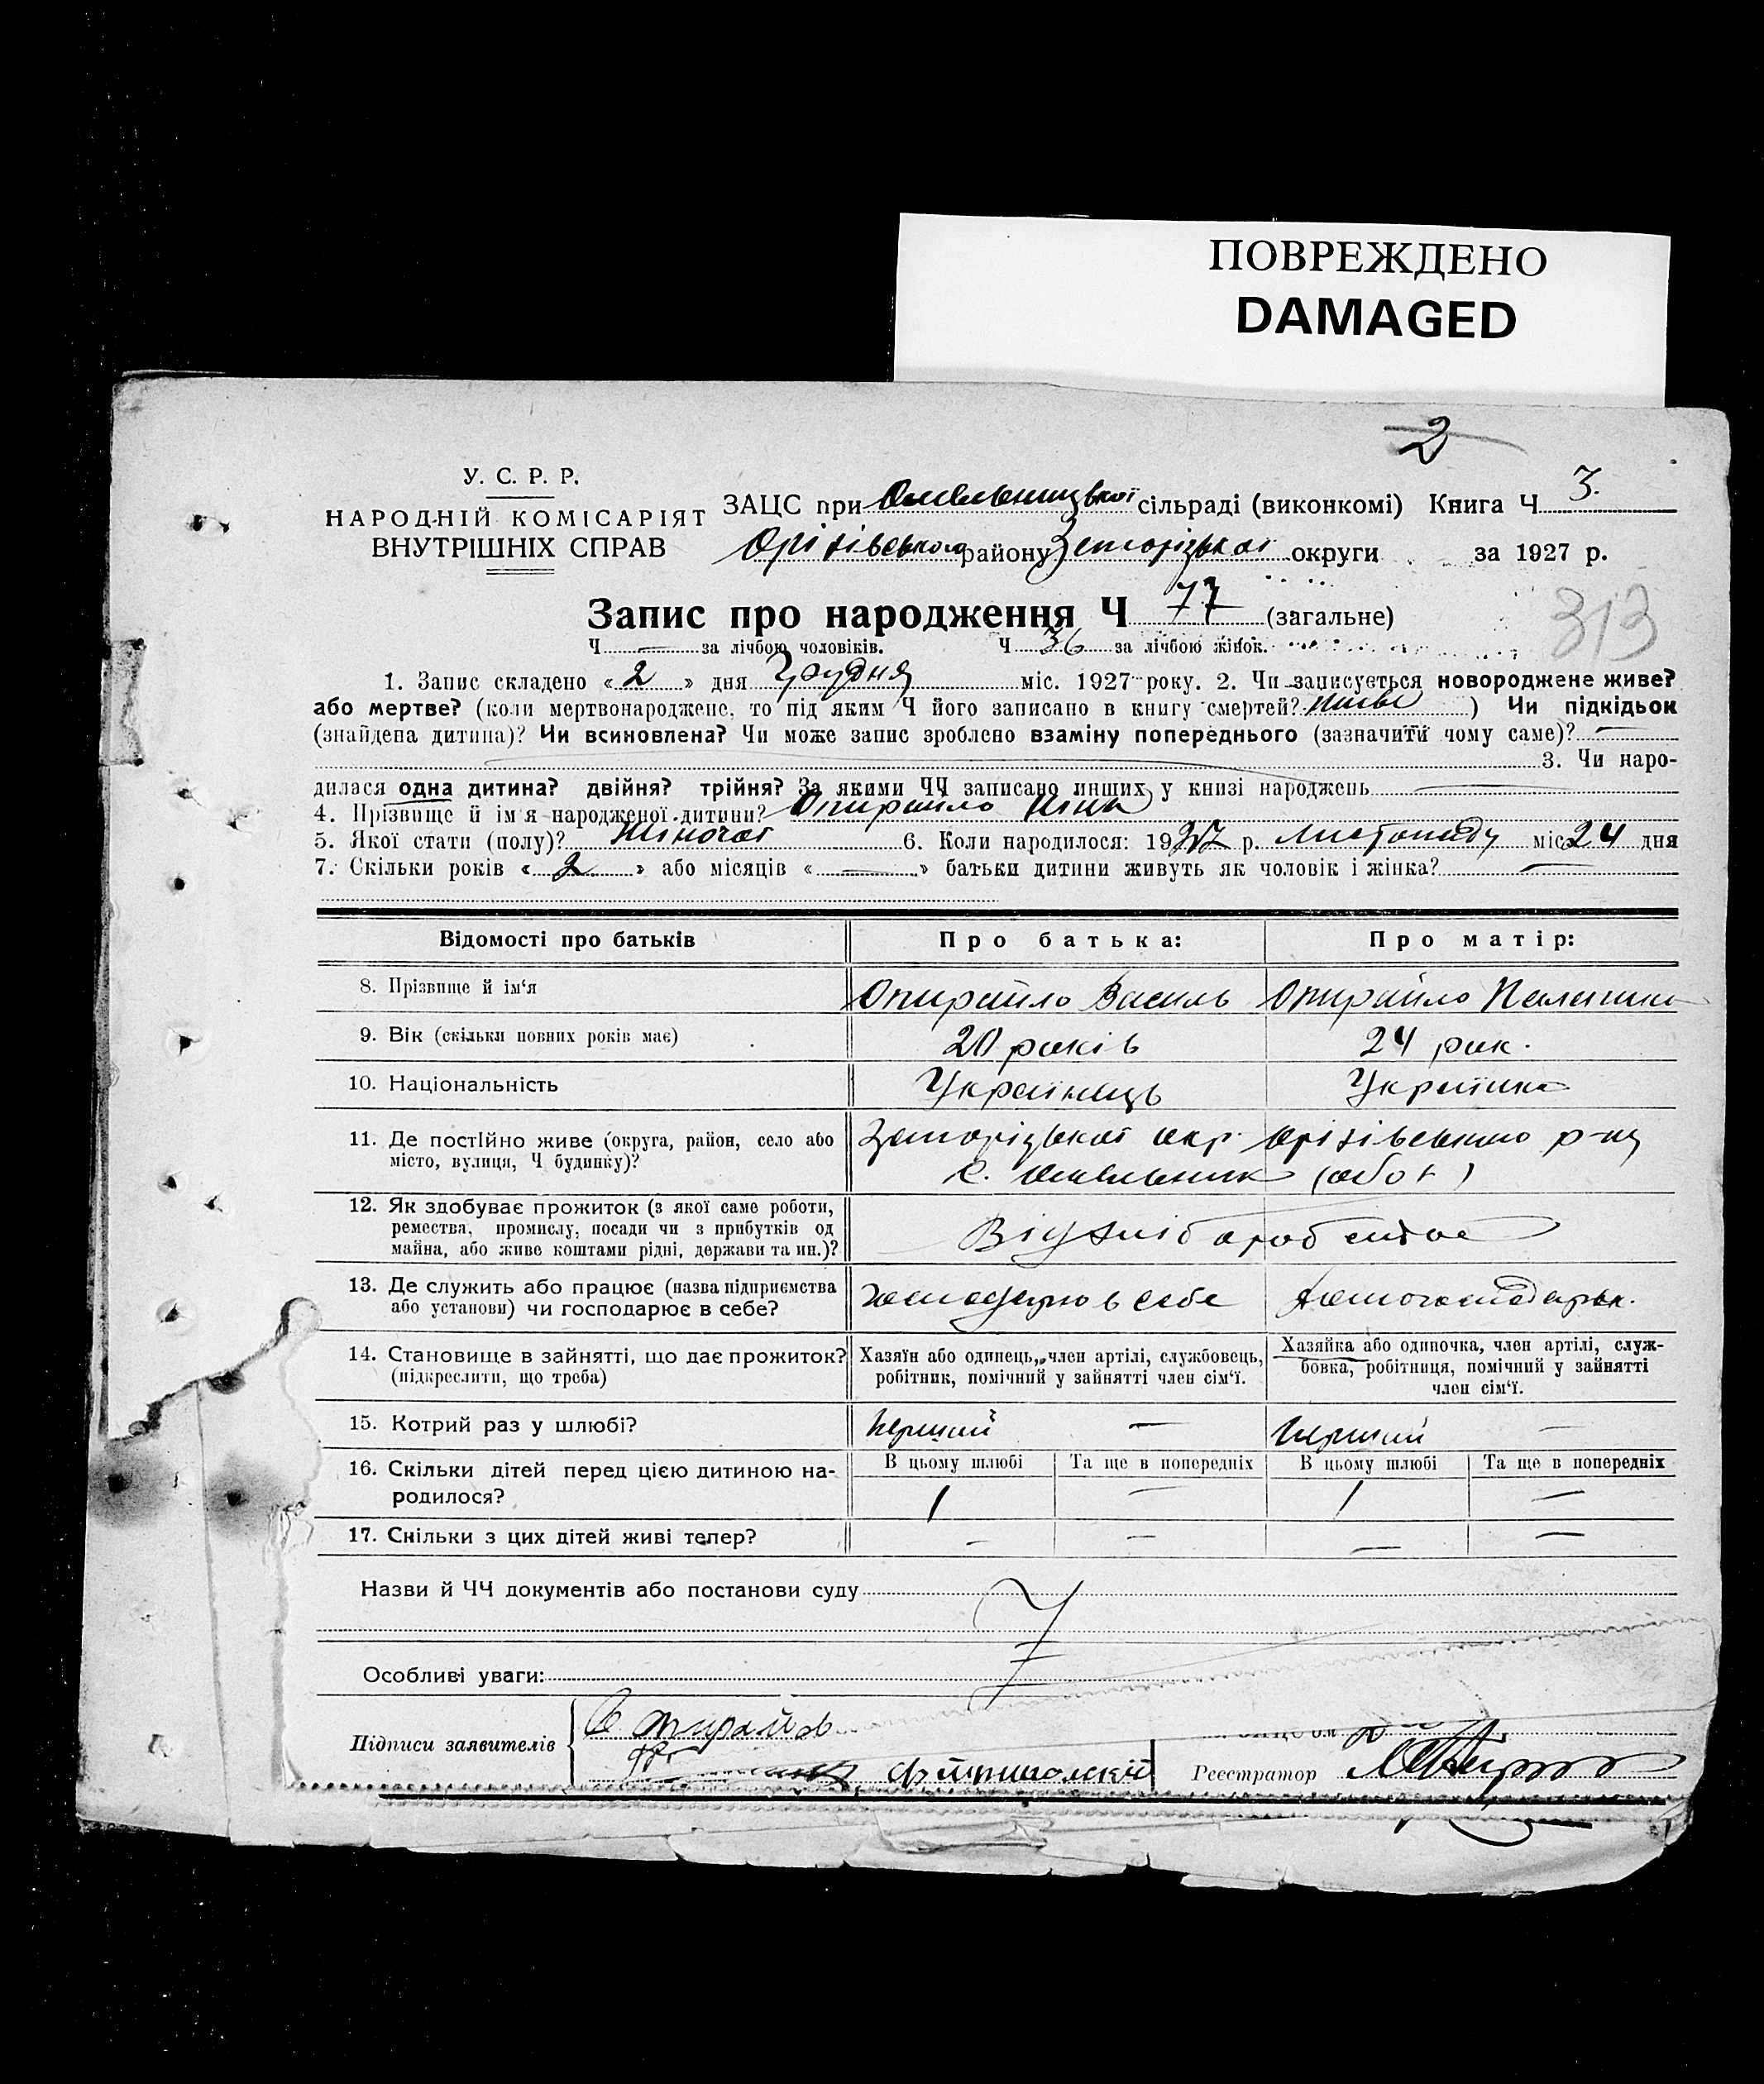 ПОВРЕЖДЕНО
DAMAGED
2
У. С. Р. Р.
НАРОДНІЙ КОМІСАРІЯТ
ВНУТРІШНІХ СПРАВ
ЗАЦС при Омельницької сільраді (виконкомі) Книга Ч 3.
Оріхівського району Запорізької округи за 1927 р.
Запис про народження Ч 77 (загальне)
313
Ч — за лічбою чоловіків. Ч 36 за лічбою жінок.
1. Запис складено « 2 » дня Грудня міс. 1927 року. 2. Чи записується новороджене живе?
або мертве? (коли мертвонароджене, то під яким Ч його записано в книгу смертей? живе ) Чи підкідьок
(знайдена дитина)? Чи всиновлена? Чи може запис зроблено взаміну попереднього (зазначити чому саме)? —
3. Чи наро-
дилася одна дитина? двійня? трійня? За якими ЧЧ записано инших у книзі народжень
4. Прізвище й ім'я народженої дитини? Опирайло Ніна
5. Якої стати (полу)? жіночої 6. Коли народилося: 1927 р. Листопаду міс. 24 дня
7. Скільки років « 2 » або місяців « — » батьки дитини живуть як чоловік і жінка? —
Відомості про батьків Про батька: Про матір:
8. Прізвище й ім'я Опирайло Василь Опирайло Палагина
9. Вік (скільки повних років має) 20 років 24 рок.
10. Національність Українець Українка
11. Де постійно живе (округа, район, село або Запорізької окр. Оріхівського р-ну
місто, вулиця, Ч будинку)? с. Омельник
12. Як здобуває прожиток (з якої саме роботи,
ремества, промислу, посади чи з прибутків од
майна, або живе коштами рідні, держави та ин.)? Від хліборобства
13. Де служить або працює (назва підприємства
або установи) чи господарює в себе? господарює в себе домогосподарьк.
14. Становище в зайнятті, що дає прожиток? Хазяїн або одинець, член артілі, службовець, Хазяйка або одиночка, член артілі, служ-
(підкреслити, що треба) робітник, помічний у зайнятті член сім'ї. бовка, робітниця, помічний у зайнятті
член сім'ї.
15. Котрий раз у шлюбі? перший — перший —
16. Скільки дітей перед цією дитиною на- В цьому шлюбі Та ще в попередніх В цьому шлюбі Та ще в попередніх
родилося? 1 — 1 —
17. Скільки з цих дітей живі тепер? — — — —
Назви й ЧЧ документів або постанови суду
Особливі уваги:
Підписи заявителів
Реєстратор